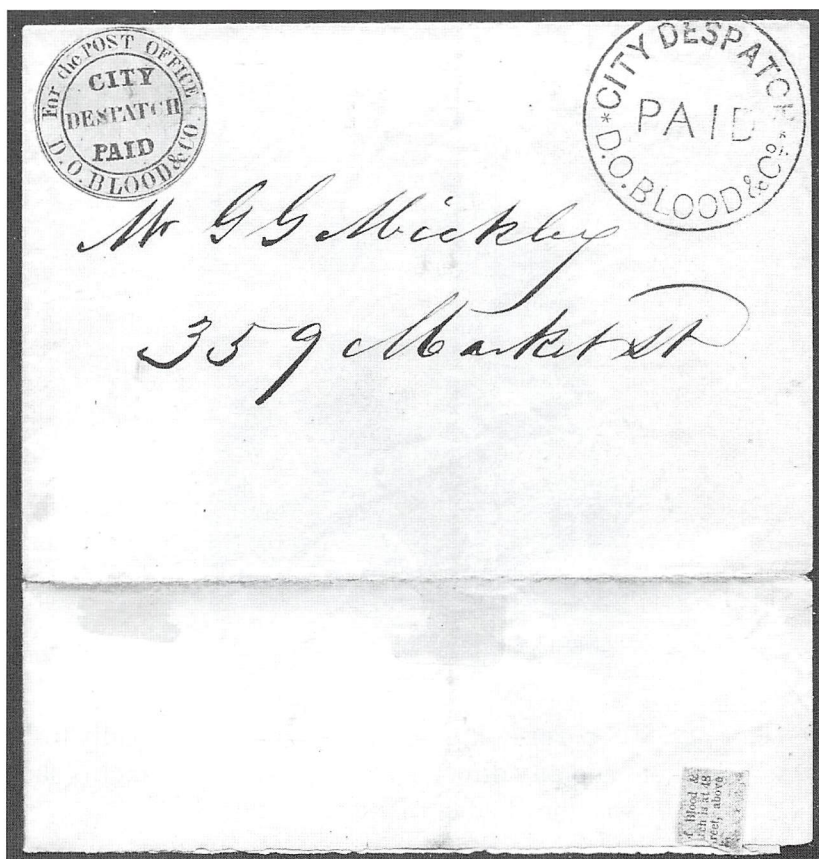 For the POST OFFICE
CITY
DESPATCH
PAID
D.O.BLOOD&CO.
CITY DESPATCH
PAID
* D.O.BLOOD & Co. *
Mr G G Mickley
359 Market St
Blood &
is at 48
above